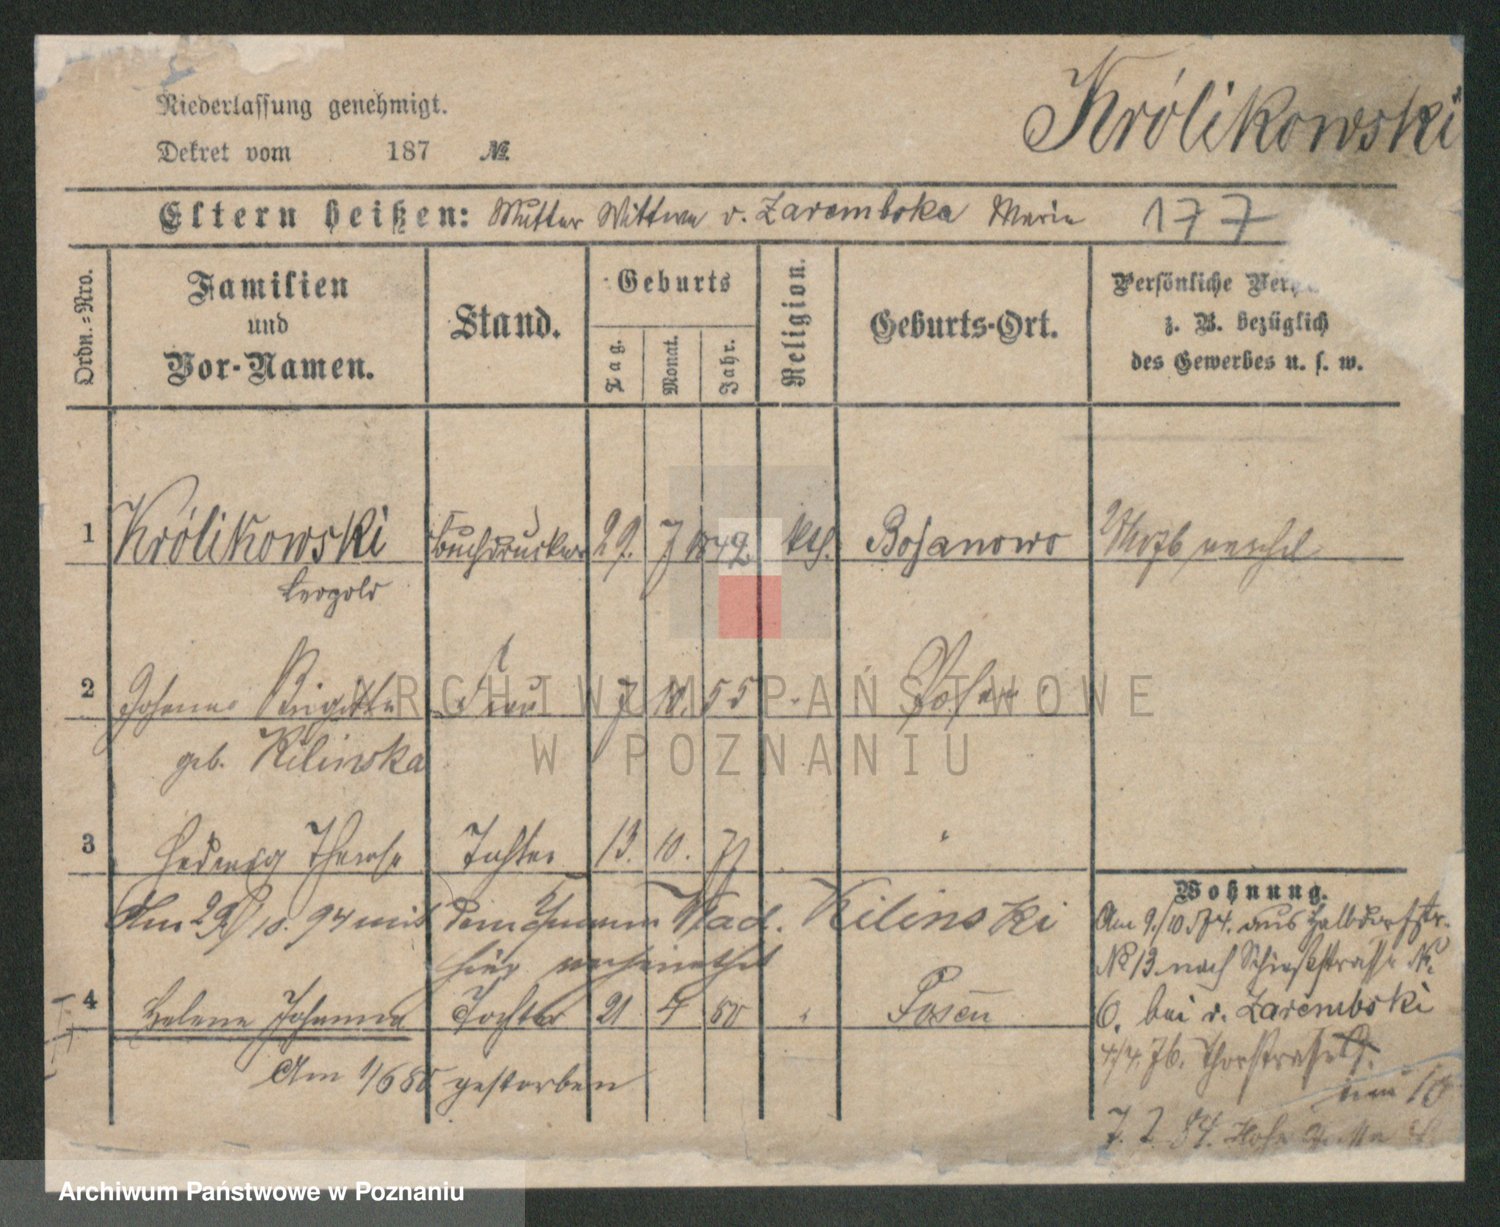 Niederlassung genehmigt.
Dekret vom 187 №
Królikowski
Eltern heißen: Mutter Wittwe v. Zaremboka Marie 177
Ordn.-Nro.
Familien und Vor-Namen.
Stand.
Geburts
Tag. Monat. Jahr.
Religion.
Geburts-Ort.
Persönliche
z. B. bezüglich
des Gewerbes u. s. w.
1 Królikowski Buchdrucker 29. 7 1849. kth. Bojanowo
Leopold
2 Johanna Brigitta Frau 7 10. 55 Posen
geb. Kilinska
3 Hedwig Therese Tochter 13. 10. 77
Am 29/10. 94 mit dem Wlad. Kilinski
hier verheirathet
4 Helene Johanna Tochter 21 4 80 Posen
Am 1/6 80 gestorben
Wohnung.
Am 9./10 74. aus Halbdorfstr.
№ 13 nach Schießstrasse №
6. bei v. Zarembski
4/4. 76. Thorstrasse
neu 10
7. 2. 84. Hohe Gasse
ARCHIWUM PAŃSTWOWE
W POZNANIU
Archiwum Państwowe w Poznaniu